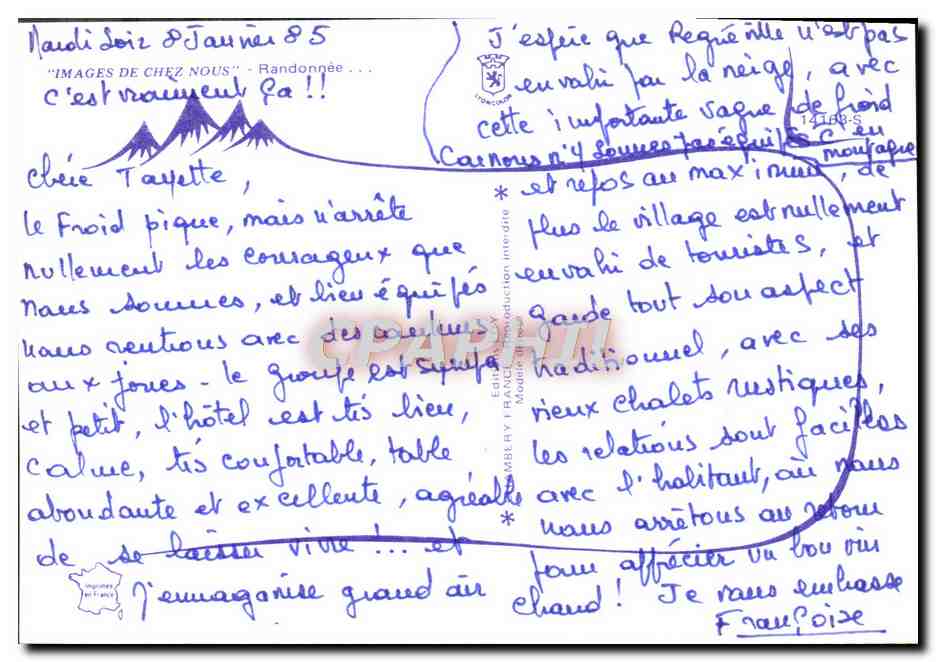 Mardi soir 8 Janvier 85
"IMAGES DE CHEZ NOUS" - Randonnée ...
c'est vraiment ça !!
Chère Tayette,
le Froid pique, mais n'arrête
nullement les courageux que
nous sommes, et bien équipés
nous rentrons avec des couleurs
aux joues - le groupe est sympa
et petit, l'hôtel est très bien,
calme, très confortable, table
abondante et excellente, agréable
de se laisser vivre !... et
j'emmagasine grand air
et repos au maximum, de
plus le village est nullement
envahi de touristes, et
garde tout son aspect
traditionnel, avec ses
vieux chalets rustiques,
les relations sont faciles
avec l'habitant, où nous
nous arrêtons au retour
pour apprécier un bon vin
chaud ! Je vous embrasse
Françoise
J'espère que Regnéville n'est pas
envahi par la neige, avec
cette importante vague de froid
Car nous n'y sommes pas équipés c/ en
montagne
LYONCOLOR
14163-S
Editions
CHAMBERY FRANCE Reproduction interdite
Modèle déposé
Imprimée
en France
CPAPHIL